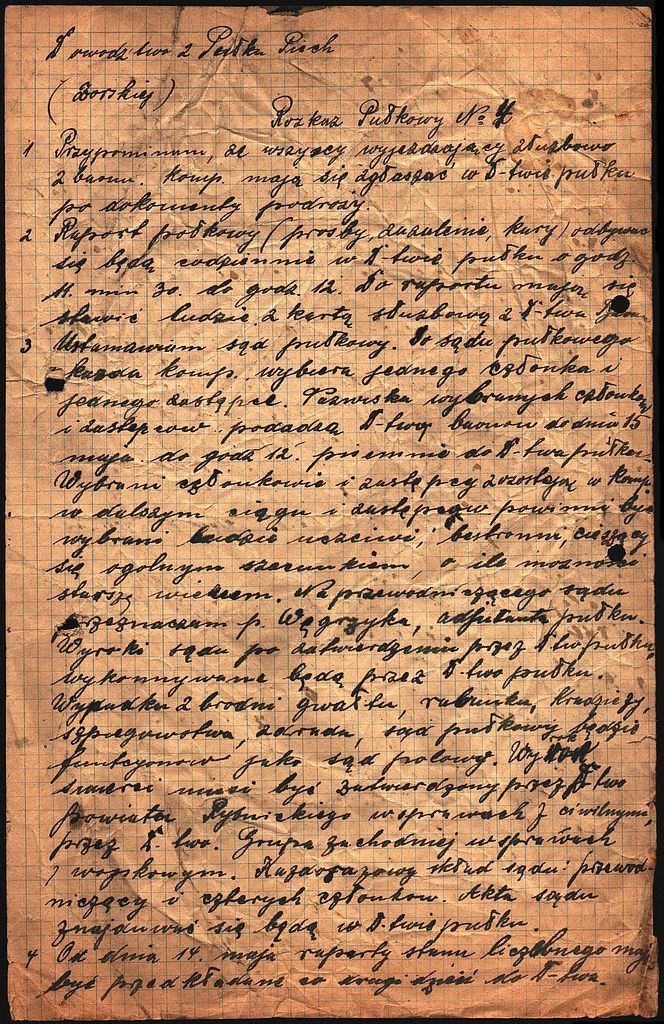 Dowodztwo 2 Pułku Piech
(Żorskiej)
Rozkaz Pułkowy No 4
1 Przypominam, że wszyscy wyjeżdzający złuzbowo
z baonu. komp. mają się zgłaszać w D-twie pułku
po dokomenty podrozy.
2 Raport połkowy (prosby, zazalenie, kary) odbywac
się będą codziennie w D-twie pułku o godz
11. min 30. do godz 12. Do raportu mają się
stawić ludzie z kartą słuzbową z D-twa
3 Ustanawiam sąd pułkowy. Do sądu pułkowego
kazda komp. wybiera jednego członka i
jednego zastępce. Nazwiska wybranych członkow
i zastępcow podadzą D-twą baonow do dnia 15
maja do godz 12. piemnie do D-twa pułku.
Wybrani członkowie i zastępcy zozostają w komp.
w dalszym ciągu i zastępcow powinni być
wybrani ludzie uczciwi, bestronni, cieszący
się ogolnym szecunkiem, o ile moznosci
starszą wiekiem. Na przewodniczącego sądu
przeznaczam p. Węgrzyka, adjutanta pułku.
Wyroki sądu po zatwierdzeniu przez D-two pułku,
wykonnywane będą przez D-two pułku.
Wypadku zbrodni gwałtu, rabunku, kradziezy,
szpiegowstwa, zdrada, sąd pułkowy będzie
funkcyonow jako sąd polowy. Wyrok
smierci musi być zatwierdzony przez D-two
powiatu Rybnickiego w sprawach z ciwilnymi,
przez D. two. Grupa zachodniej w sprawach
z wojskowym. Kazdorazowy skład sądu: przewod-
niczący i czterych członkow. Akta sądu
znajduwać się będą w D-twie pułku.
4 Od dnia 14. maja raporty stanu liczebnego mają
być przedkładane co drugi dzień do D-twa.